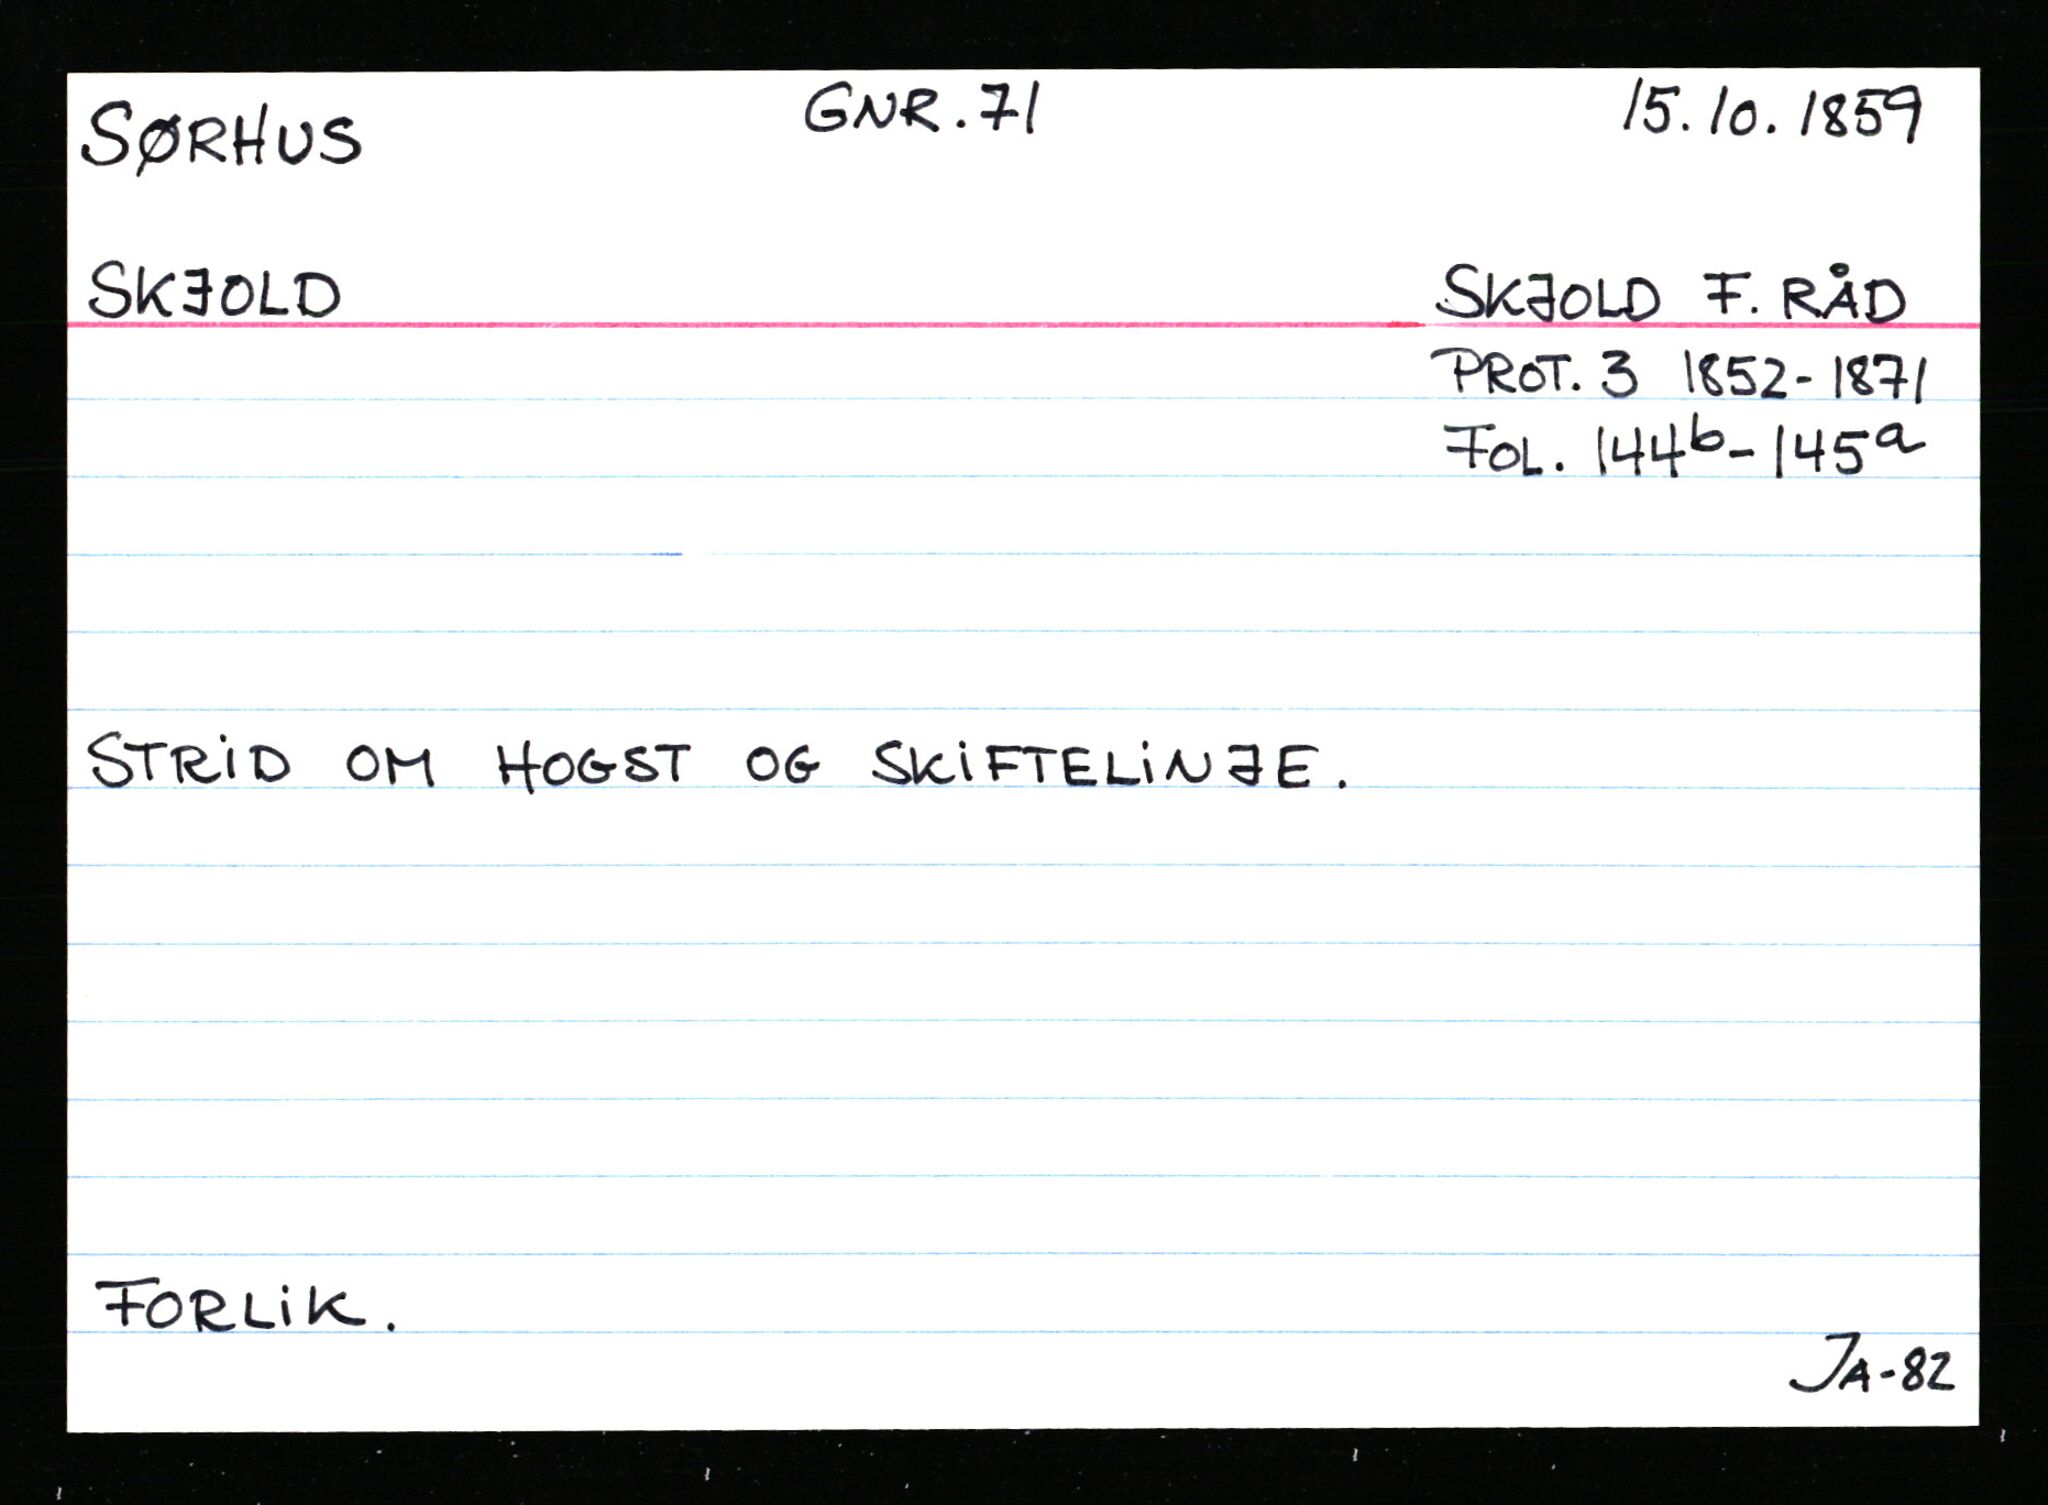 SØRHUS GNR. 71 15.10.1859
SKJOLD SKJOLD F. RÅD
PROT. 3 1852-1871
FOL. 144b-145a
STRID OM HOGST OG SKIFTELINJE.
FORLIK.
JA-82